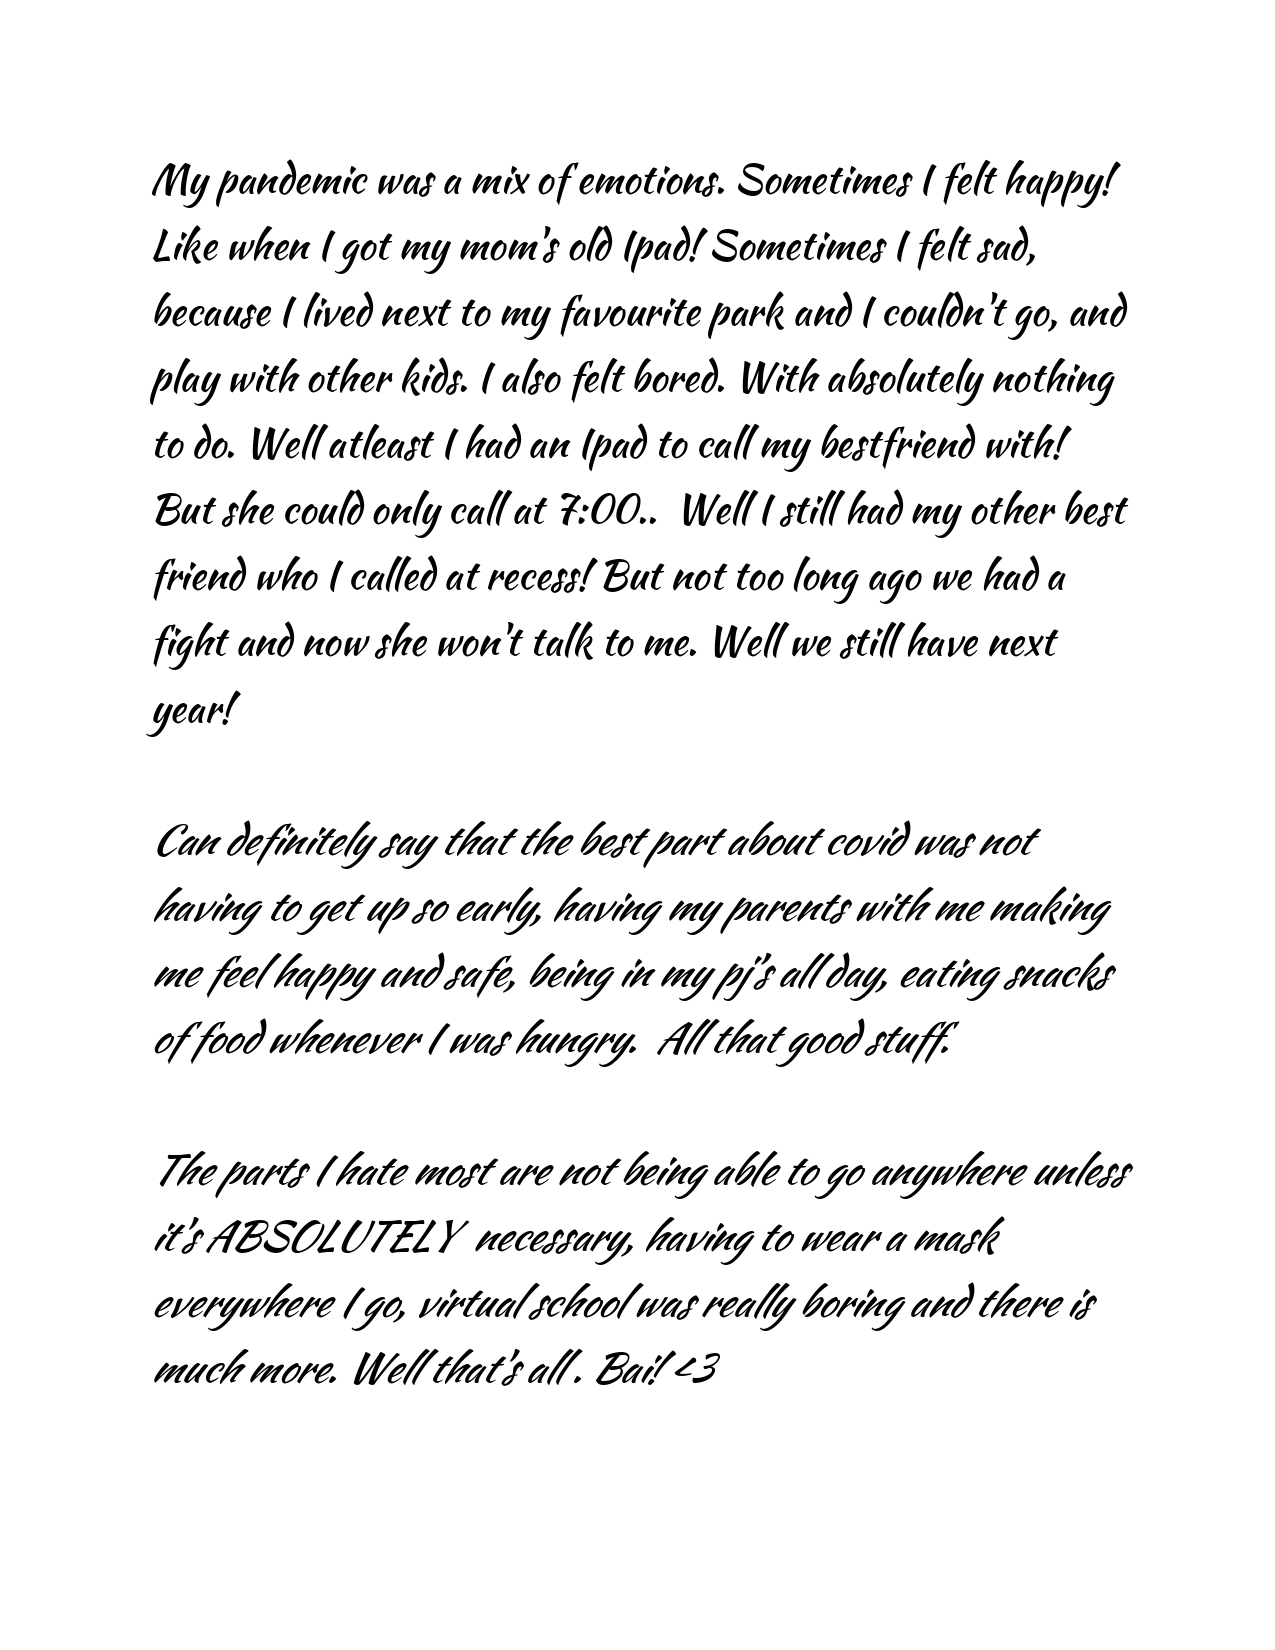 My pandemic was a mix of emotions. Sometimes I felt happy!
Like when I got my mom's old Ipad! Sometimes I felt sad,
because I lived next to my favourite park and I couldn't go, and
play with other kids. I also felt bored. With absolutely nothing
to do. Well atleast I had an Ipad to call my bestfriend with!
But she could only call at 7:00..  Well I still had my other best
friend who I called at recess! But not too long ago we had a
fight and now she won't talk to me. Well we still have next
year!
Can definitely say that the best part about covid was not
having to get up so early, having my parents with me making
me feel happy and safe, being in my pj's all day, eating snacks
of food whenever I was hungry.  All that good stuff.
The parts I hate most are not being able to go anywhere unless
it's ABSOLUTELY  necessary, having to wear a mask
everywhere I go, virtual school was really boring and there is
much more. Well that's all . Bai! <3